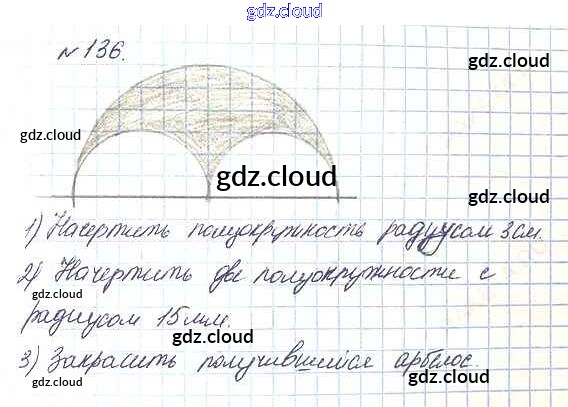 gdz.cloud
№ 136.
gdz.cloud
gdz.cloud
gdz.cloud
1) Начертить полуокружность радиусом 3 см.
gdz.cloud
2) Начертить две полуокружности с
gdz.cloud
радиусом 15 мм.
gdz.cloud
3) Закрасить получившийся арбелос.
gdz.cloud
gdz.cloud